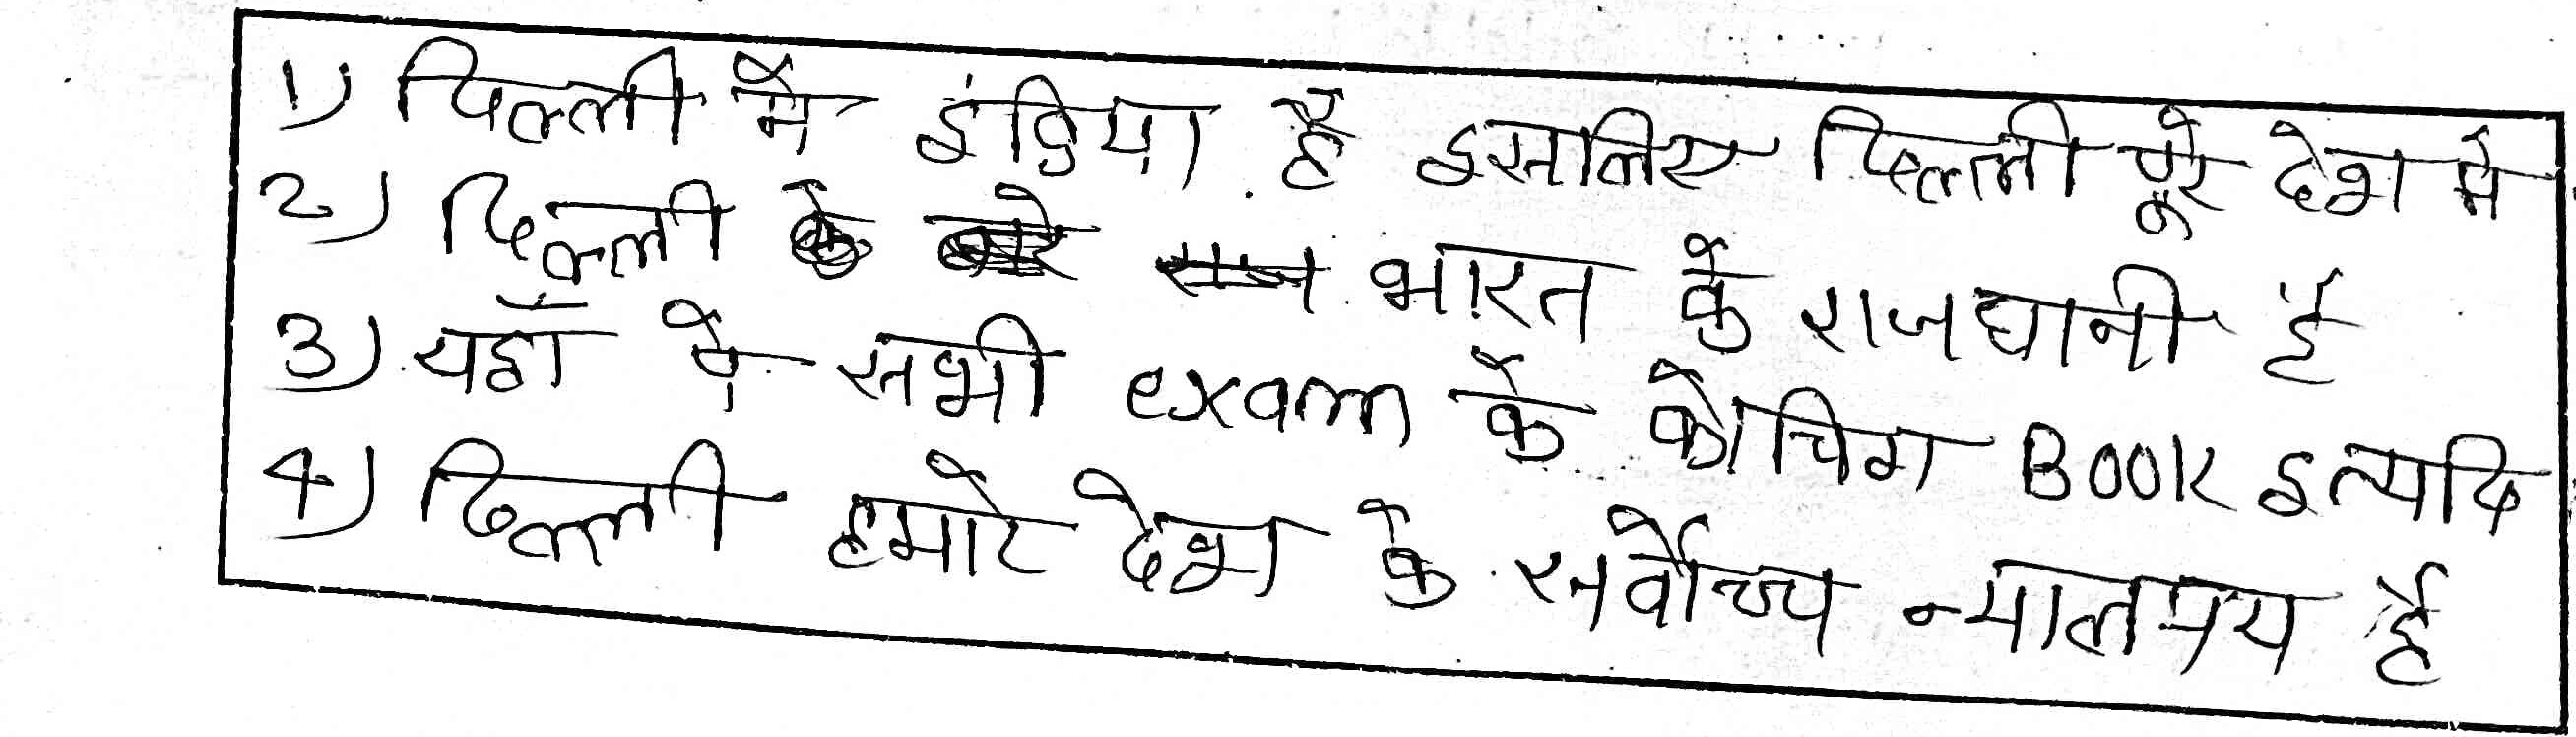 1) दिल्ली में इंडिया है इसलिए दिल्ली पूरे देश में
2) दिल्ली भारत के राजधानी है
3) यहाँ पे सभी exam के कोचिग Book इत्यादि
4) दिल्ली हमारे देश के सर्वोच्च न्यालयय है